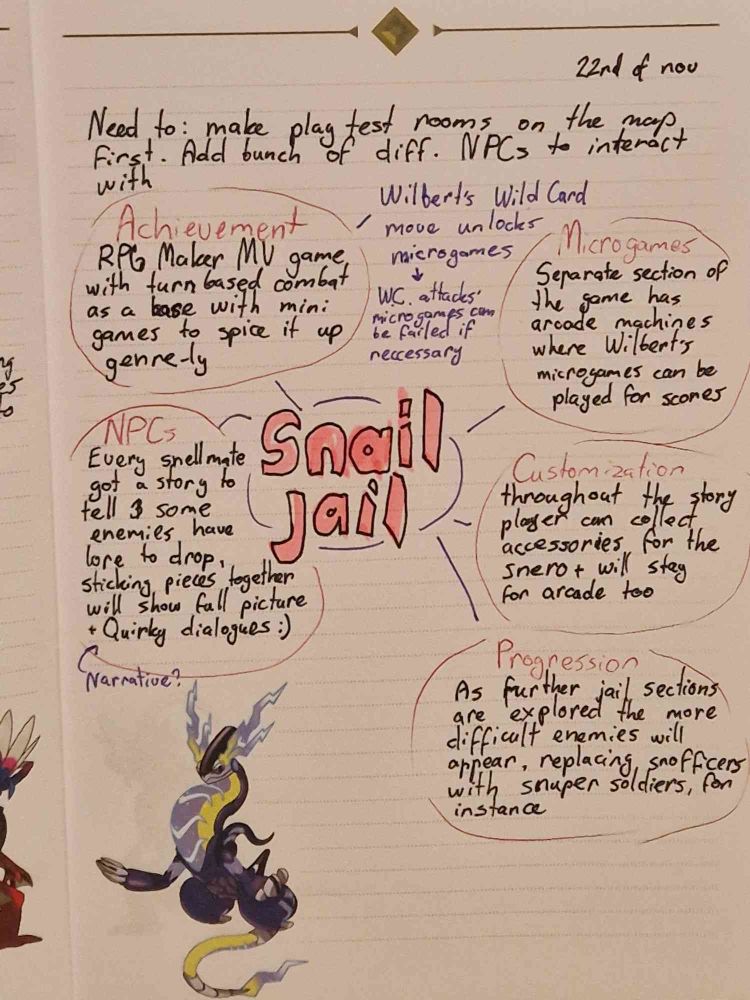 22nd of nov
Need to: make play test rooms on the map
first. Add bunch of diff. NPCs to interact
with
Achievement
RPG Maker MV game
with turn based combat
as a base with mini
games to spice it up
genre-ly
Wilbert's Wild Card
move unlocks
microgames
↓
W.C. attacks'
microgames can
be failed if
neccessary
Microgames
Separate section of
the game has
arcade machines
where Wilbert's
microgames can be
played for scores
Snail
Jail
NPCs
Every snellmate
got a story to
tell & some
enemies have
lore to drop,
sticking pieces together
will show full picture
+ Quirky dialogues :)
Narrative?
Customization
throughout the story
player can collect
accessories for the
snero + will stay
for arcade too
Progression
As further jail sections
are explored the more
difficult enemies will
appear, replacing snofficers
with snuper soldiers, for
instance